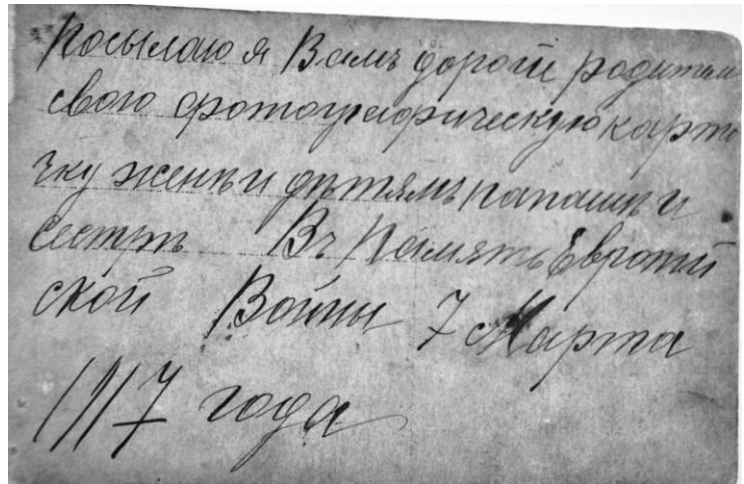 Посылаю я Вамъ дорогіи родители
свою фотографическую карто
чку женѣ и дѣтямъ папашѣ и
сестрѣ Въ Память Европій
ской Войны 7 Марта
1917 года